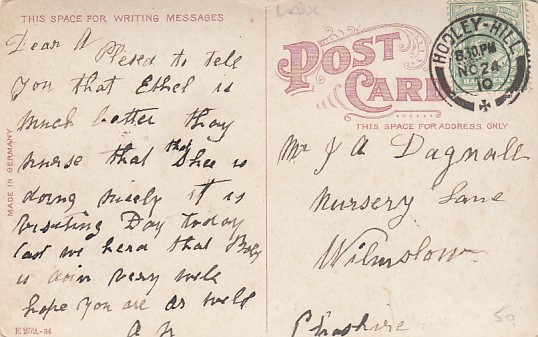 THIS SPACE FOR WRITING MESSAGES
Dear A Plesed to tell
you that Ethel is
much better thay
nurse that thay Shee is
doing nicely it is
visiting Day today
last we herd that Baby
is doin very well
hope you are as well
A H
MADE IN GERMANY
E 2572.-54
POST
CARD
THIS SPACE FOR ADDRESS ONLY
HOOLEY-HILL
8.30 PM
NO 24
10
Mr J A Dagnall
nursery Lane
Wilmslow
Cheshire
50